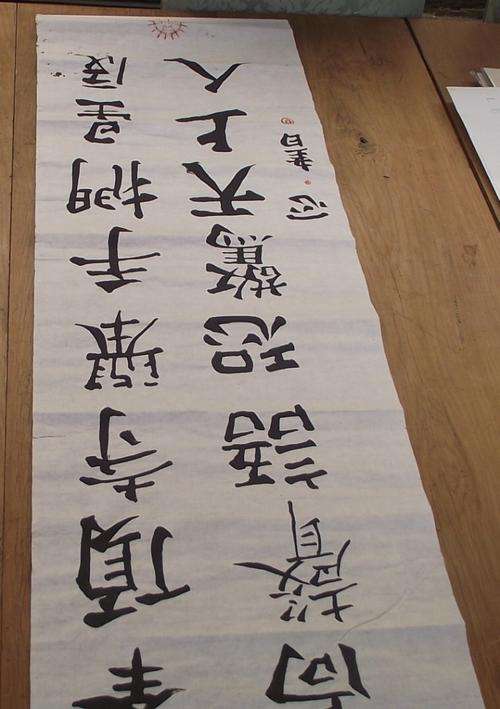 頂寺舉手捫星辰
高聲語恐驚天上人
書